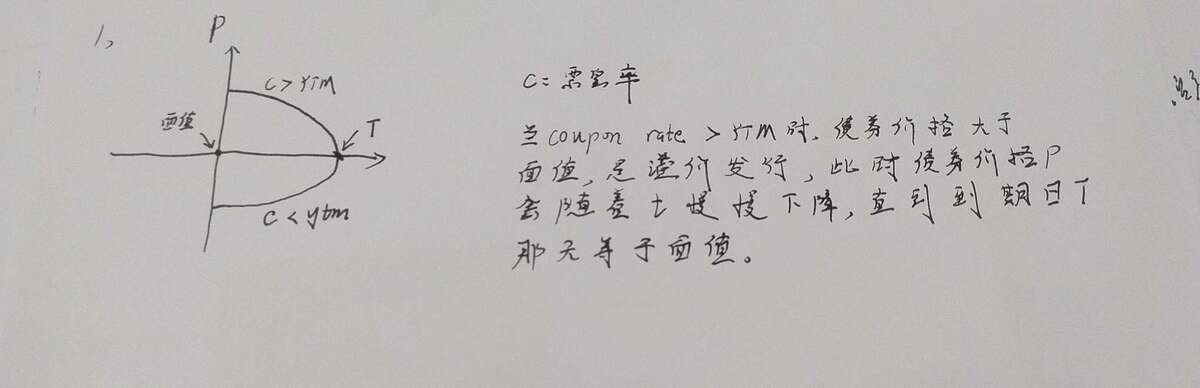 1,
P
C > YTM
面值
T
C < ytm
C = 票息率
当 coupon rate > YTM 时, 债券价格大于
面值, 是溢价发行, 此时债券价格 P
会随着 t 慢慢下降, 直到到期日 T
那天等于面值。